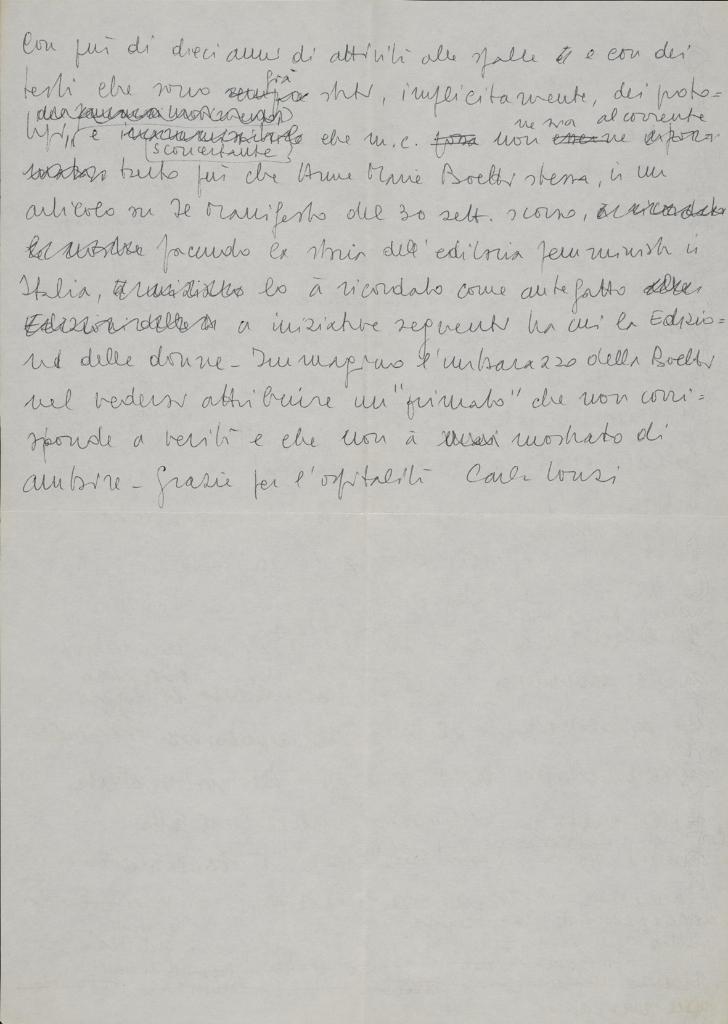 Con più di dieci anni di attività alle spalle e con dei
testi che sono già stati, implicitamente, dei proto=
tipi, è
sconcertante che m.c. non ne sia al corrente
tanto più che Anne Marie Boetti stessa, in un
articolo su Il Manifesto del 30 sett. scorso,
facendo la storia dell'editoria femminista in
Italia, lo à ricordato come antefatto
a iniziative seguenti tra cui la Edizio=
ni delle donne - Immagino l'imbarazzo della Boetti
nel vedersi attribuire un "primato" che non corri=
sponde a verità e che non à mostrato di
ambire - Grazie per l'ospitalità Carla Lonzi